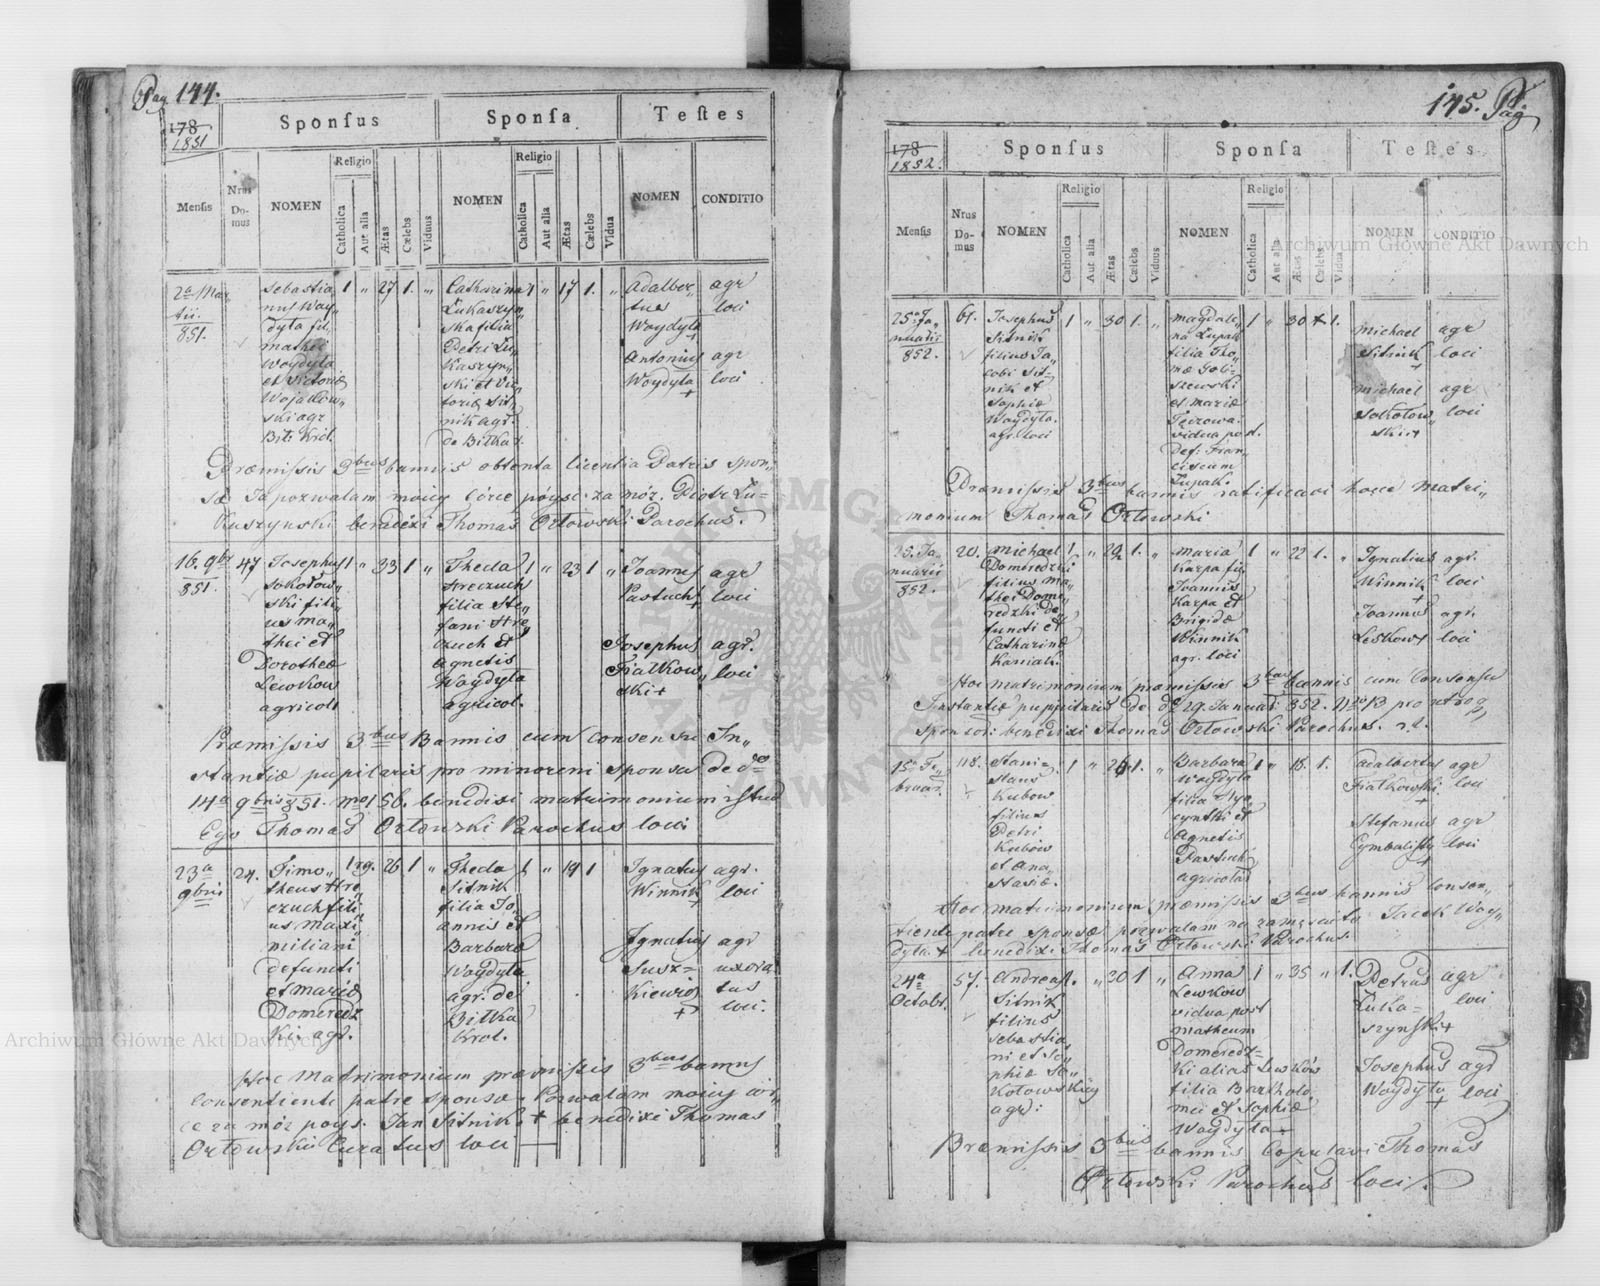 Pag 144.
178
1851
Sponſus
Sponſa
Teſtes
Menſis
Nrus Do-mus
NOMEN
Religio
Catholica
Aut alia
Ætas
Cælebs
Viduus
NOMEN
Religio
Catholica
Aut alia
Ætas
Cælebs
Vidua
NOMEN
CONDITIO
2a Mar
tii.
851.
Sebastia
nus Woy„
dyla fil.
Mathei
Woydyla
et Victoriæ
ski agr
1 „ 27 1. „
Catharina
Łukaszyn„
ska filia
Petri Łu„
kaszyn„
ski et Vic
toriæ Sit„
nik agr.
de Bilka
1 „ 17 1. „
Adalber„
tus
Woydyla
+
Antonius
Woydyla
+
agr
loci
agr
loci
Præmissis 3bus bannis obtenta licentia Patris spon„
sæ Ja pozwalam moiey córce póyść za móż. Piotr Łu-
kaszynski benedixi Thomas Orłowski Parochus.
16. 9br
851.
47
Josephus
Sokołow„
ski fili„
us Ma„
thei et
Dorotheæ
Lewkow
agricol.
1 „ 33 1 „
Thecla
Hreczuch
filia Ste„
fani Hre„
czuch et
Agnetis
Woydyla
agricol.
1 „ 23 1 „
Joannes
Pastuch
+
Josephus
Fiałkow„
ski +
agr
loci
agr.
loci
Præmissis 3bus Bannis cum consensu In„
stantiæ pupilaris pro minoreni sponsa de dto
14a 9bris 851. No 156. benedixi matrimonium istud
Ego Thomas Orłowski Parochus loci
23a
9bris
24.
Timo„
theus Hre„
czuch fili
us Maxi„
miliani
defuncti
et Mariæ
Domeredz
ki. agr.
1 rg. 26 1 „
Thecla
Sitnik
filia Jo„
annis et
Barbaræ
Woydyla
agr. de
Bilka
Krol.
1 „ 19 1 „
Ignatius
Winnik
+
Ignatius
Susz=
kiewicz
+
agr.
loci
agr
uxora
tus
loci.
Hoc Matrimonium præmissis 3bus bannis
consentiente patre sponsæ. Pozwalam moiey cór„
ce za móż póyś. Jan Sitnik + benedixi Thomas
Orłowski Curatus loci
145. Pag
178
1852.
Sponſus
Sponſa
Teſtes
Menſis
Nrus Do-mus
NOMEN
Religio
Catholica
Aut alia
Ætas
Cælebs
Viduus
NOMEN
Religio
Catholica
Aut alia
Ætas
Cælebs
Vidua
NOMEN
CONDITIO
25a Ja„
nuarii
852.
61.
Josephus
Sitnik
filius Ja„
cobi Sit-
nik et
Sophiæ
Woydyla.
agr. loci
1 „ 30 1. „
Magdale„
na Łupak
filia Tho„
mæ
et Mariæ
vidua post.
def: Fran„
ciscum
Łupak.
1 „ 30 1.
Michael
Sitnik
+
Michael
Sokołow„
ski +
agr
loci
agr
loci
Præmissis 3bus bannis ratificavi hocce matri„
monium Thomas Orłowski
25. Ja„
nuarii
852.
20.
Michael
Domeredzki
filius Ma„
thei Dome„
redzki de„
functi et
Catharinæ
1 „ 22 1. „
Maria
Karpa fi„
Joannis
Karpa et
Brigidæ
Winnik
agr. loci
1 „ 22 1. „
Ignatius
Winnik
+
Joannes
Leskow
agr.
loci
agr.
loci
Hoc matrimonium præmissis 3bus bannis cum Consensu
Instantiæ pupilaris de dto 29. Januari 852. No 13 pro utroq
sponso: benedixi Thomas Orłowski Parochus.
15a Fe„
bruar.
118.
Stani=
slaus
Kubow
filius
Petri
Kubow
et Ana„
stasiæ.
1 „ 26 1. „
Barbara
Woydyla
filia Hya„
cynthi et
Agnetis
Pastuch
agricolar
1 „ 18. 1.
Adalbertus
Fiałkowski
+
Stefanus
Cymbalista
+
agr
loci
agr
loci
Hoc matrimonium præmissis 3bus bannis consen„
tiente patre sponsæ pozwalam na zamęscie Jacek Woy„
dyla + benedixi Thomas Orłowski Parochus.
24a
Octobr.
57.
Andreas
Sitnik
filius
Sebastia„
ni et So„
phiæ So„
kołowskiey
agr:
1. „ 30 1 „
Anna
Lewkow
vidua post
Matheum
Domeredz=
ki alias Lewków
filia Bartholo
mei et Sophiæ
Woydyla
1 „ 35 „ 1.
Petrus
Łuka=
szynski +
Josephus
Woydyla
+
agr
loci
agr
loci
Præmissis 3bus bannis copulavi Thomas
Orłowski Parochus loci
Archiwum Główne Akt Dawnych
Archiwum Główne Akt Dawnych
ARCHIWUM GŁÓWNE AKT DAWNYCH